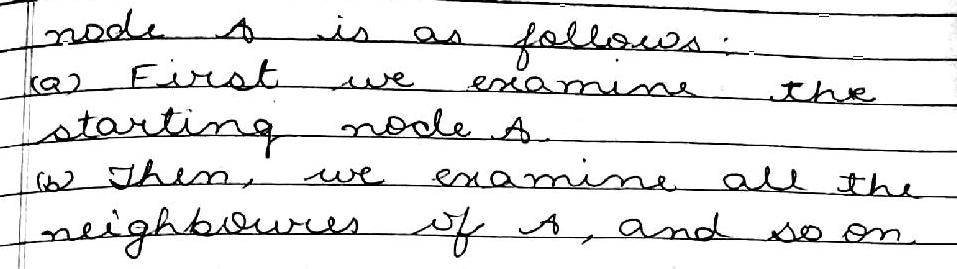 node A is as follows:
(a) First we examine the
starting node A.
(b) Then, we examine all the
neighboures of A, and so on.